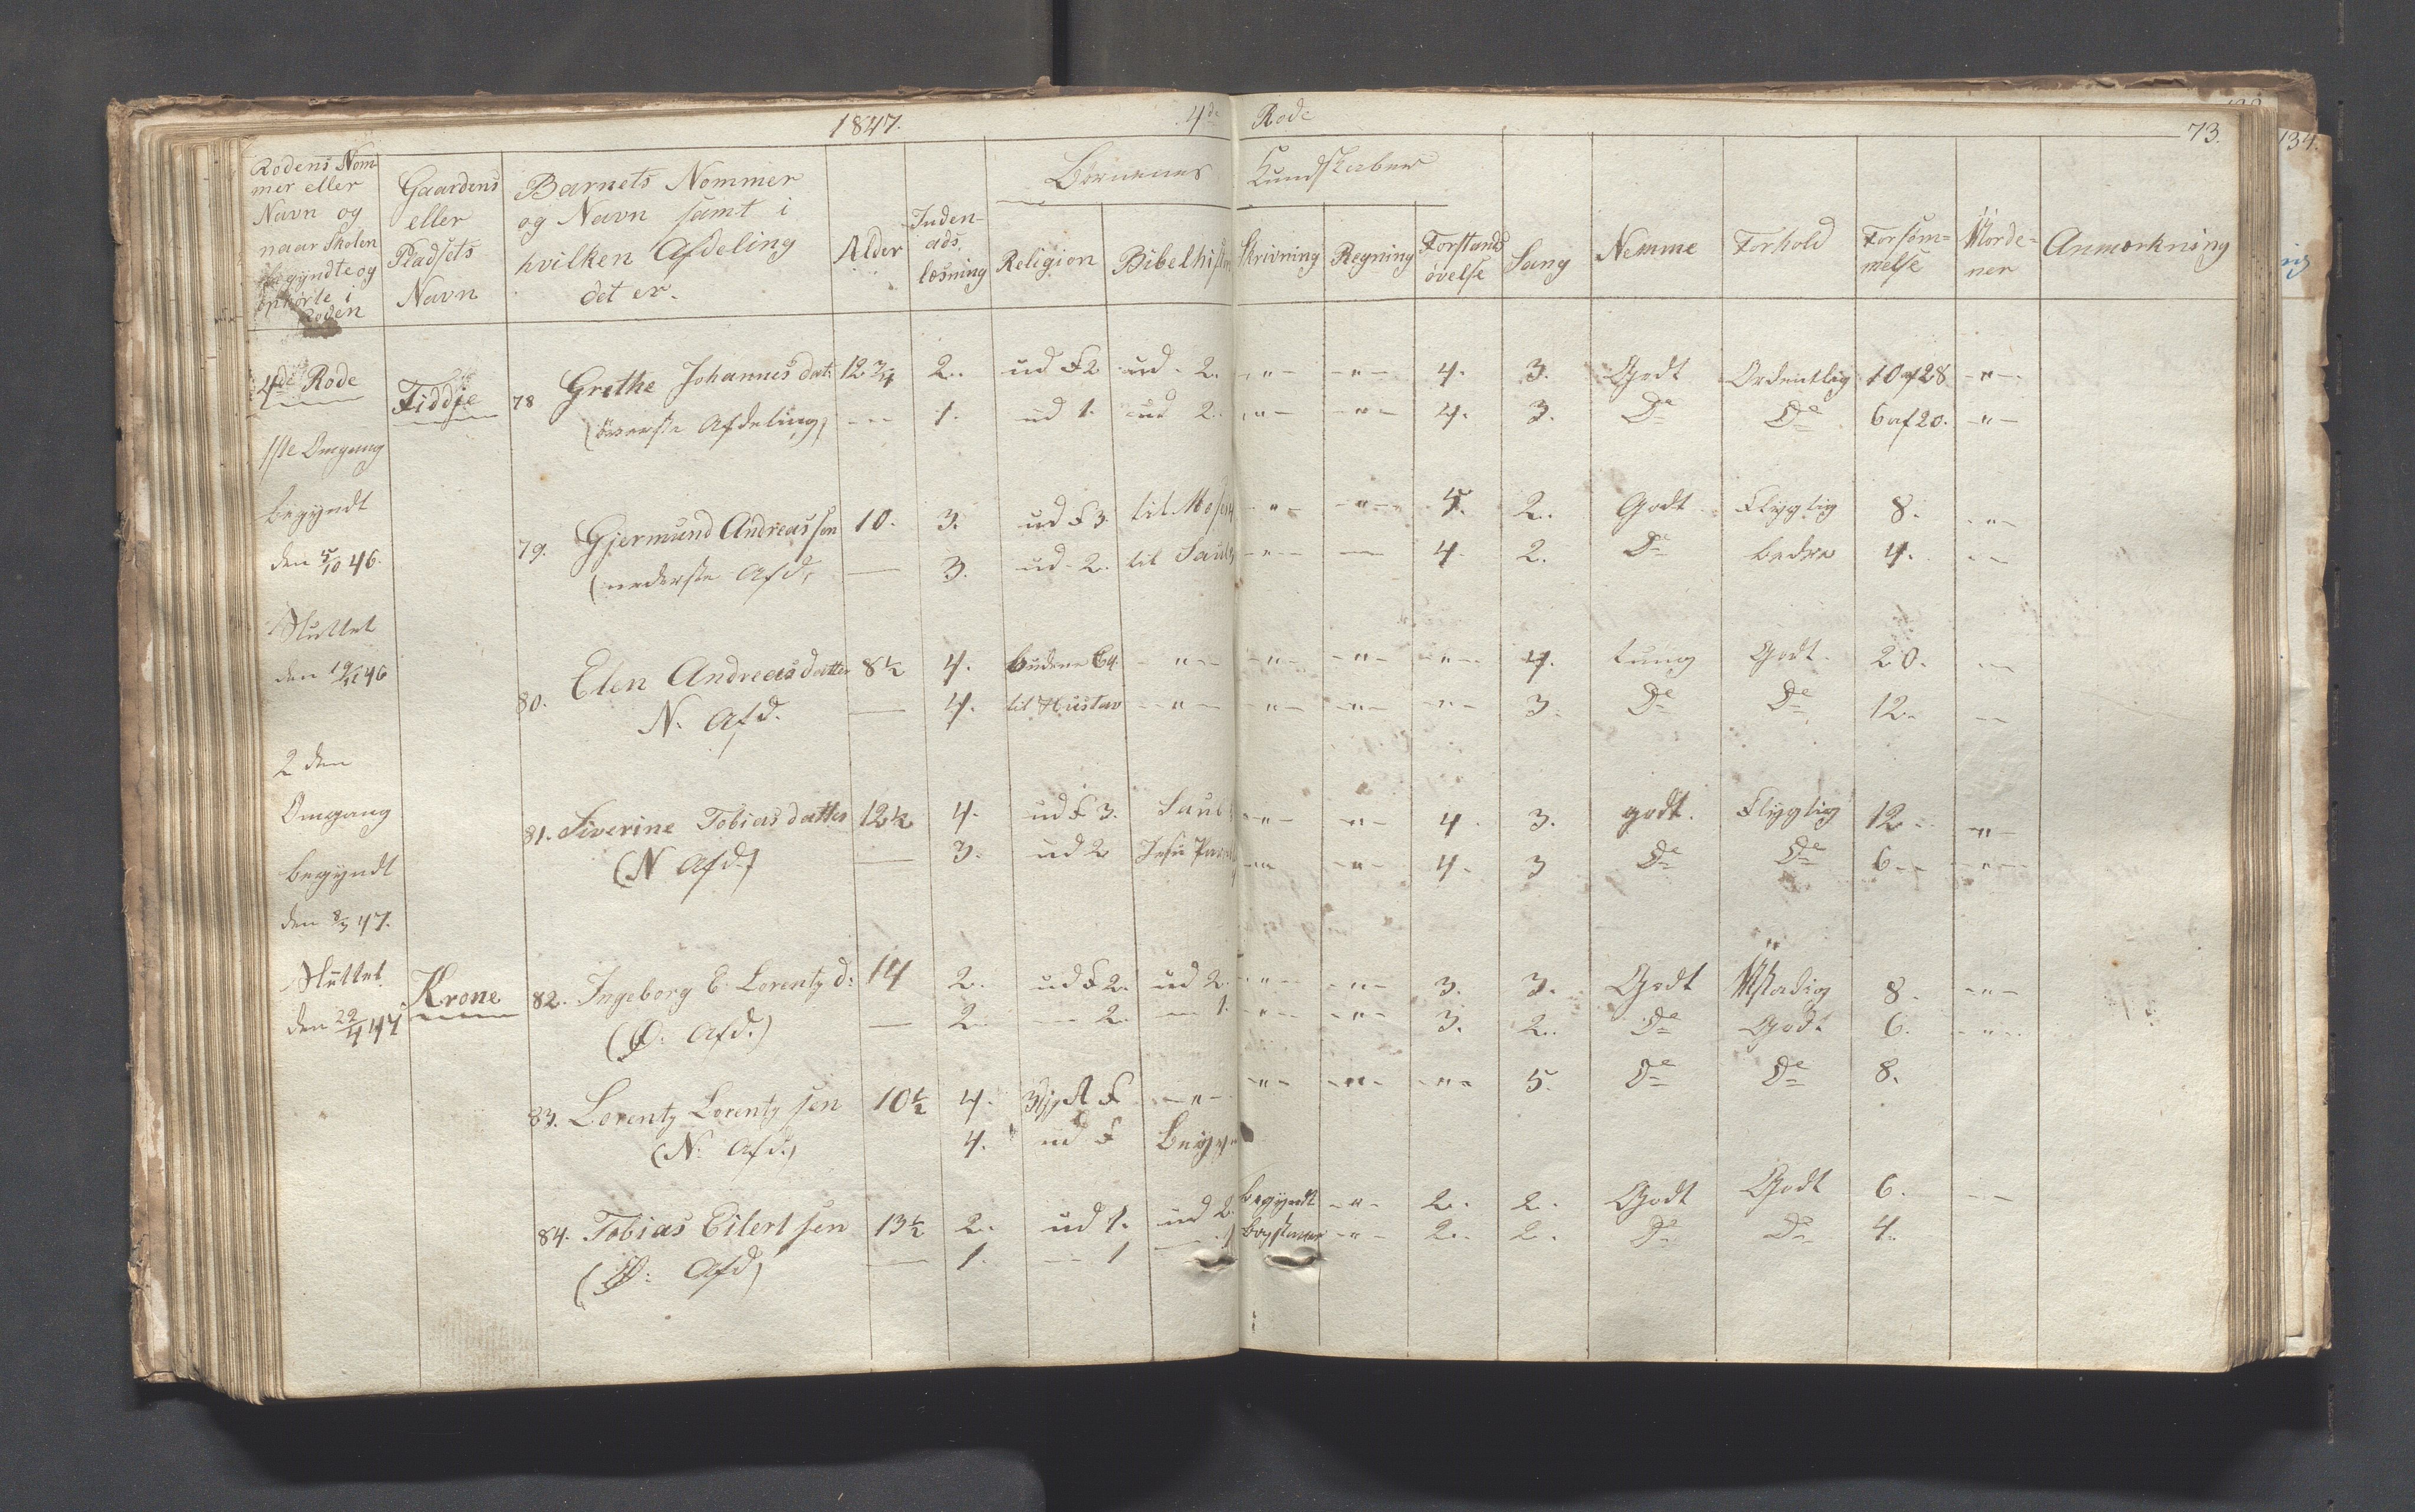 1847. 4de Rode 73.
134.
Rodens Nom
mer eller
Navn og
naar Skolen
begyndte og
ophørte i
Roden
Gaardens
eller
Pladsets
Navn
Barnets Nommer
og Navn samt i
hvilken Afdeling
det er.
Alder
Inden-
ads
læsning
Børnenes Kundskaber
Religion
Bibelhist
Skrivning
Regning
Forstands
øvelse
Sang
Nemme
Forhold
Forsøm=
melse
Anmærkning
4de Rode Fiddje 78 Grethe Johannesdat: 12 3/4 2. ud F 2 ud - 2. -"- -"- 4. 3. Godt Ordentlig 10 af 28 -"-
(øverste Afdeling) -- 1. ud 1. ud 2. -"- -"- 4. 3. De De 6 af 20. -"-
1ste Omgang
begyndt
79. Gjermund Andreassen 10. 3. ud F 3. til Moses -"- -"- 5. 2. Godt Flygtig 8. -"-
den 5/10 46.
(nederste Afd: — 3. ud - 2. til Sauls -"- — 4. 2. De bedre 4. --
Sluttet
80. Elen Andreasdatter 8 1/2 4. budene C4. -"- -"- -"- -"- 4. tung Godt. 20. --
den 19/11 46
N. Afd. — 4. til Hustav -"- -"- -"- -"- 3. De De 12. --
2den
Omgang
81. Siverine Tobiasdatter 12 1/2 4. ud F 3. Saul -"- -"- 4. 3. godt. Flygtig 12. -"-
(N Afd:) — 3. ud 2 Jesu -"- -"- 4. 3 De De 6 -- -"-
begyndt
den 8/3 47.
Sluttet Krone 82. Ingeborg E. Lorentz d: 14 2. ud F 2. ud 2. -"- -"- 3. 3. Godt 8. -"-
den 22/4 47
(Ø: Afd.) — 2. — 2. — 1. -"- -"- 3. 2. De God. 6. -"-
83. Lorentz Lorentz sen 10 1/2 4. -"- -"- -"- -"- 5. De De 8.
(N. Afd.) 4. ud F
84. Tobias Eilert sen 13 1/2 2. ud 1. ud 2. begyndt -"- 2. 2. Godt Godt 6. --
(Ø: Afd) — 1. -- 1 — 1 -"- 2. 2. De De 4.